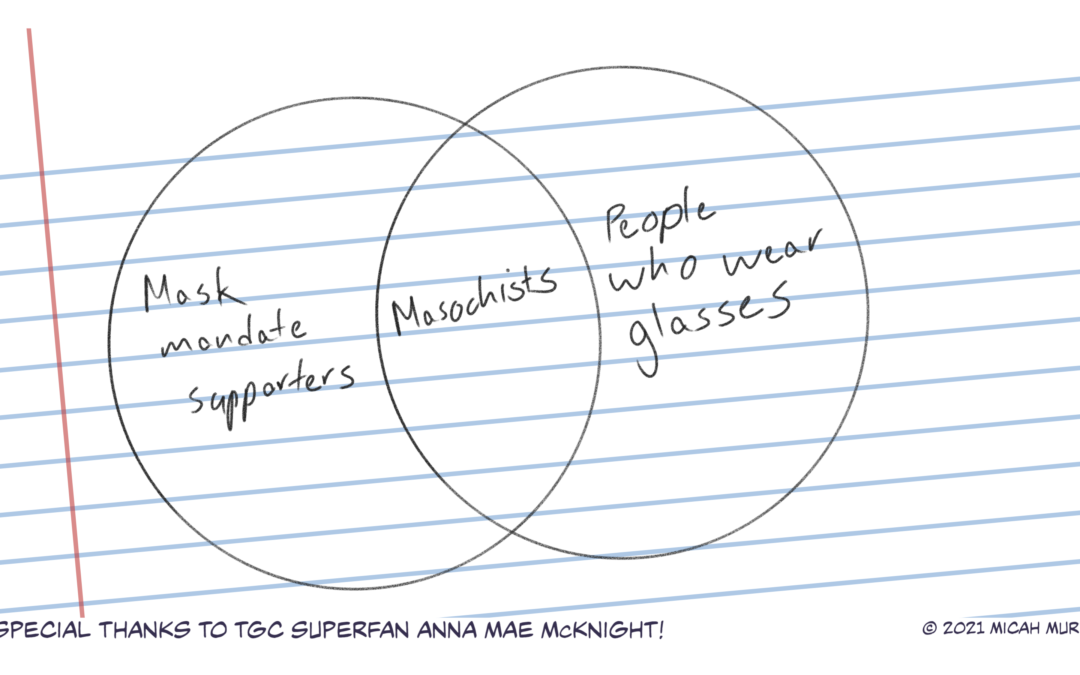 Mask
mandate
supporters
Masochists
People
who wear
glasses
SPECIAL THANKS TO TGC SUPERFAN ANNA MAE McKNIGHT!
© 2021 MICAH MUR